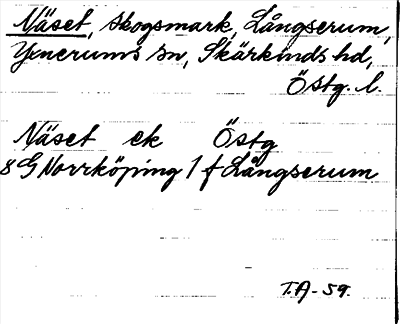 Näset, skogsmark, Långserum,
Yxnerums sn, Skärkinds hd,
Östg. l.
Näset ek Östg
8 G Norrköping 1 f Långserum
T.A-59.